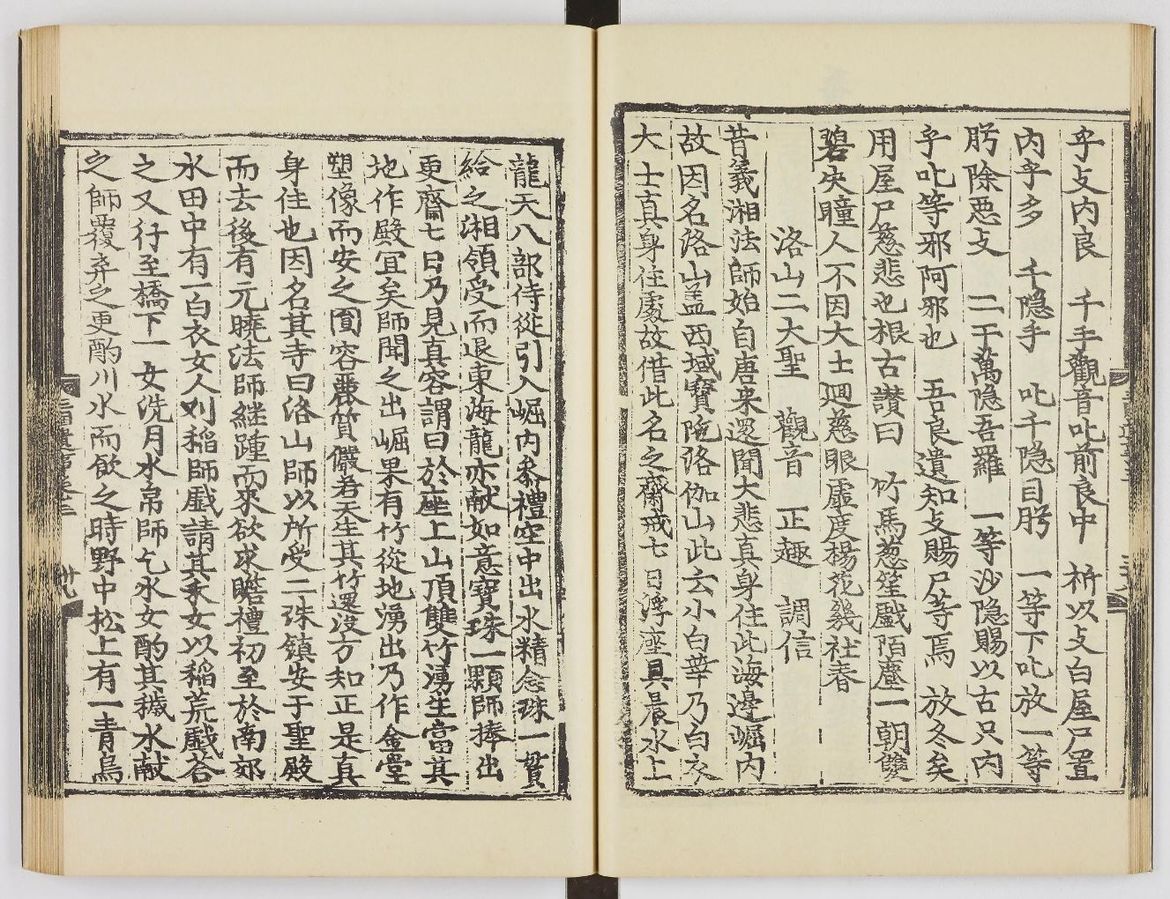 乎攴內良　千手觀音叱前良中　祈以攴白屋尸置
內乎多　千隱手　叱千隱目肹　一等下叱放一等
肹除惡攴　二于萬隱吾羅　一等沙隱賜以古只內
乎叱等邪阿邪也　吾良遺知攴賜尸等焉　放冬矣
用屋尸慈悲也根古讃曰　竹馬葱笙戱陌塵一朝雙
碧失瞳人不因大士廻慈眼虛度楊花幾社春
洛山二大聖　觀音　正趣　調信
昔義湘法師始自唐来還聞大悲真身住此海邊崛内
故因名洛山盖西域寶陁洛伽山此云小白華乃白衣
大士真身住處故借此名之齋戒七日浮座具晨水上
龍天八部侍從引入崛内叅禮空中出水精念珠一貫
給之湘領受而退東海龍亦献如意寶珠一顆師捧出
更齋七日乃見真容謂曰於座上山頂雙竹湧生當其
地作殿宜矣師聞之出崛果有竹從地湧出乃作金堂
塑像而安之圎容麗質儼若天生其竹還没方知正是真
身住也因名其寺曰洛山師以所受二珠鎮安于聖殿
而去後有元曉法師継踵而來欲求瞻禮初至於南郊
水田中有一白衣女人刈稲師戱請其禾女以稲荒戱荅
之又行至橋下一女洗月水帛師乞水女酌其穢水献
之師覆弃之更酌川水而飲之時野中松上有一青鳥